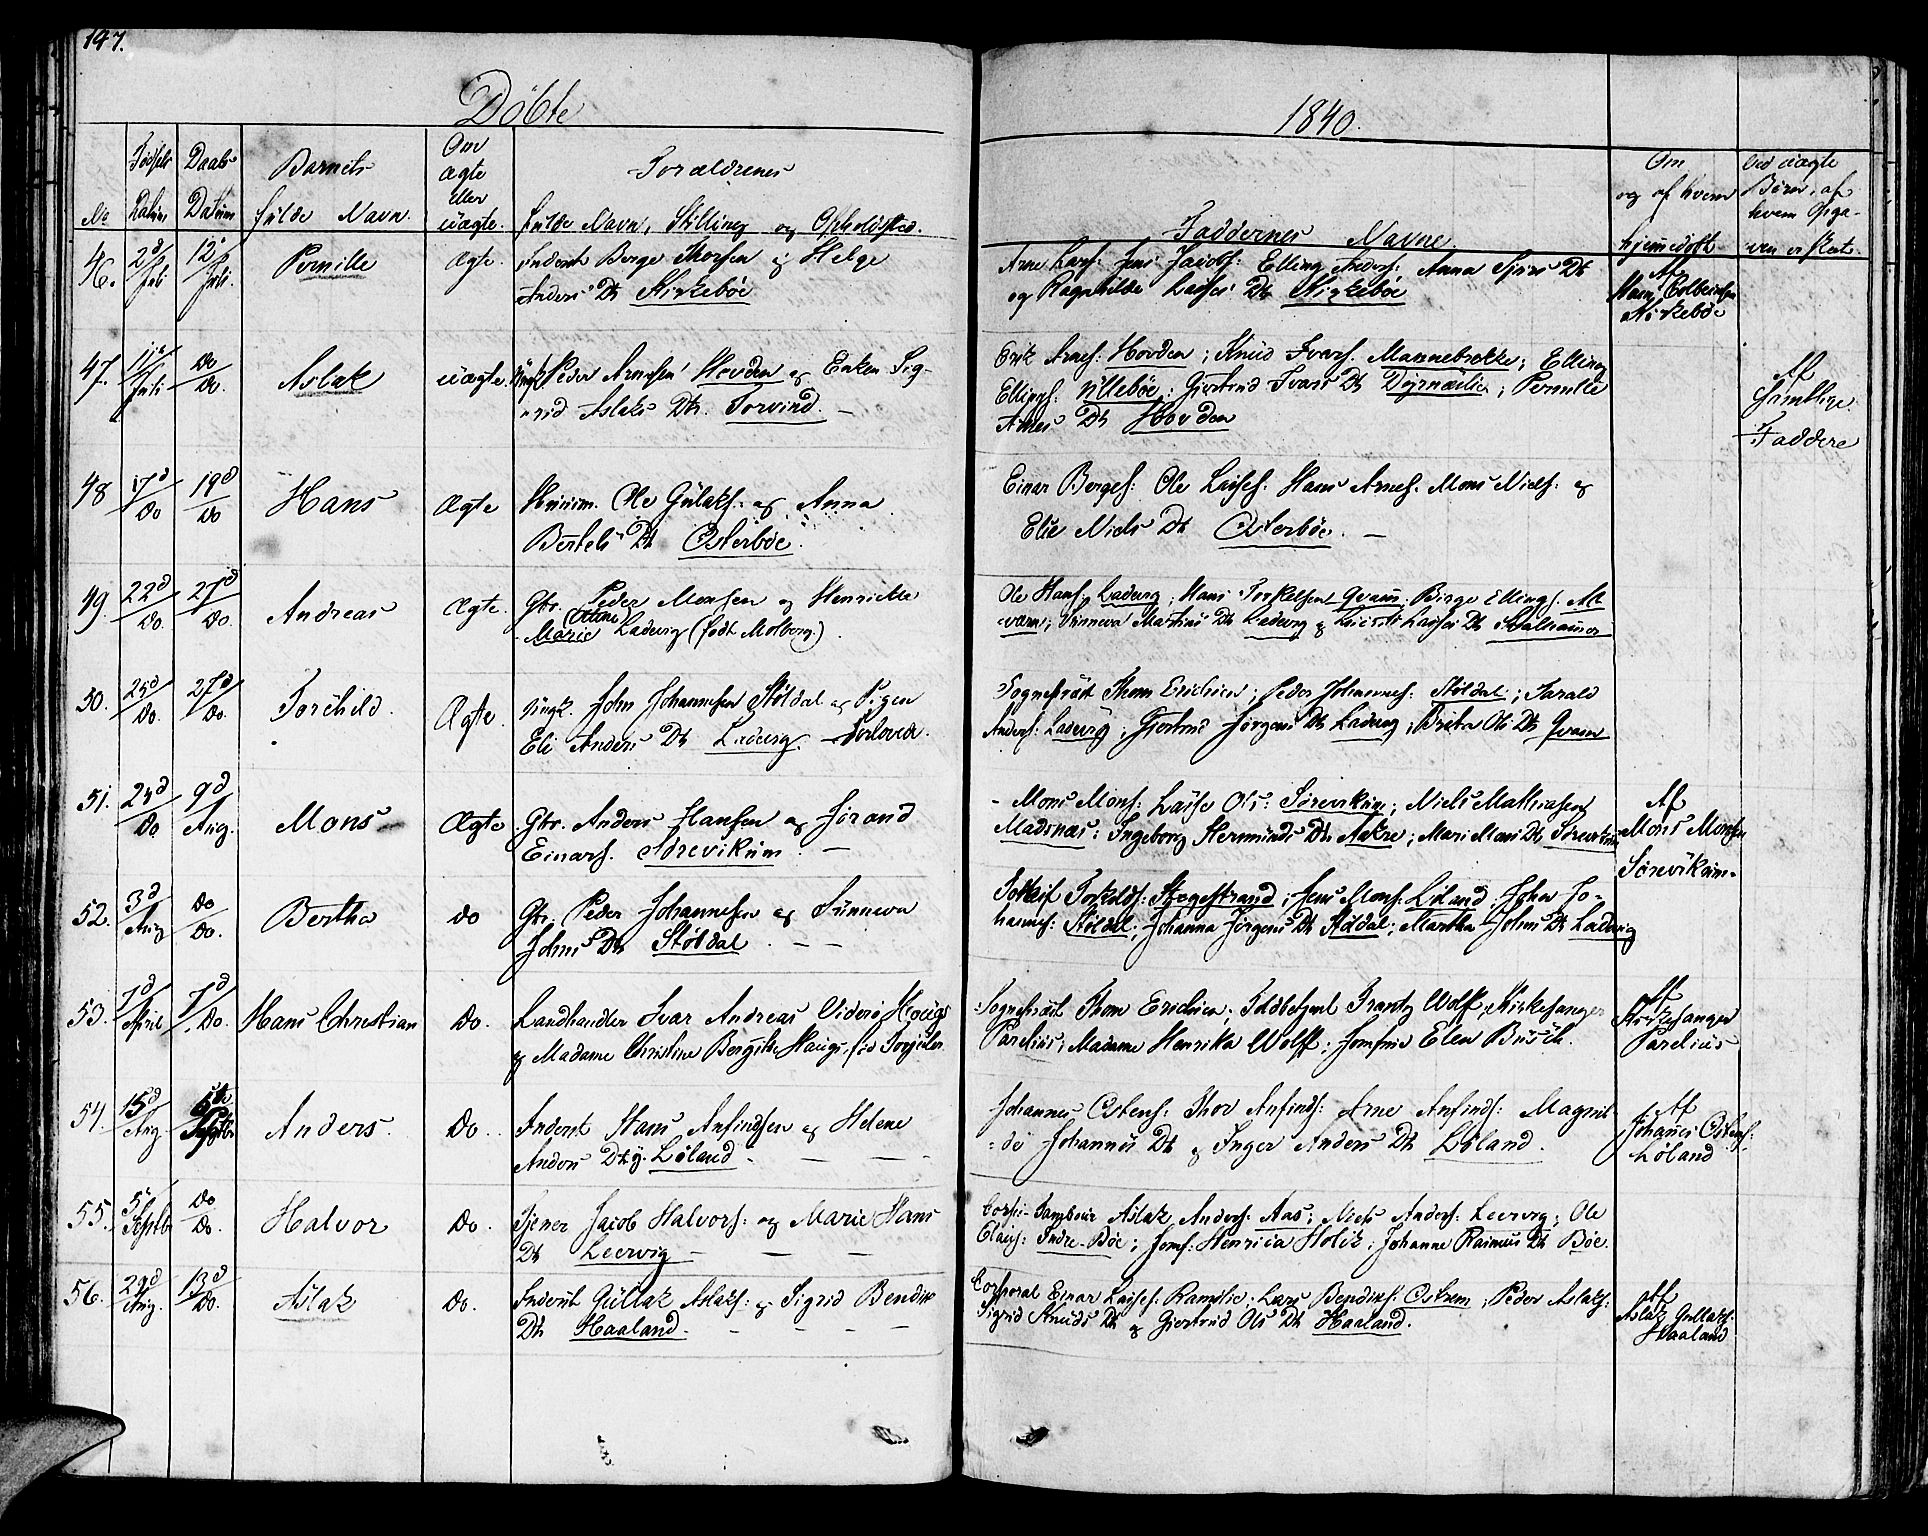 147.
Döbte
1840.
No
Fødsels Datum
Daabs Datum
Barnets
fulde Navn.
Om ægte eller uægte.
Forældrenes
fulde Navn, Stilling og Opholdsted.
Faddernes Navne.
Om og af hvem hjemedøbt
Ved uægte Børn, af hvem Opgaven er skeet.
46. 2d/Juli 12/Juli. Pernille Ægte. Inderst Berge Thorsen og Helge
Anders Dt Kirkebøe
Arne Lars: Jens Jacobs: Elling Anders: Anna Dt
og Ragnhilde Lasses Dt Kirkebøe
Af
Kirkebøe
47. 11/Juli Do/Do. Aslak uægte. Ungk Peder Arnesen Hovden og Enken Sig-
rid Aslaks Dtr. Torvind. —
Erik Arnes: Hovden; Knud Ivars. Mannebrække; Elling
Ellings. Villebøe; Giertrud Ivars Dt Dyrnælie; Pernille
Arnes Dt Hovden
Af
Samtlige
Faddere
48 17d/Do 19d/Do Hans Ægte Ole Gulaks: og Anna
Bertels Dt Østerbøe.
Einar Berges: Ole Lasses: Hans Arnes: Mons Niels: og
Elie Niels Dt Østerbøe. —
49. 22d/Do. 27d/Do. Andreas Ægte. Gbr. Peder Monsen og Henrikke
Marie Ladevig (født Molberg)
Ole Hans: Ladevig; Hans Torkelsen Qvam. Birge Ellings.
Sünneva Martins Dt Ladevig og Lasses Dt
50. 25d/Do. 27d/Do. Torchild. Ægte. Ungk. John Johannesen Støldal og Pigen
Eli Anders Dt Ladevig. Forlovede.
Sogneprest Thom Erichsen; Peder Johannes: Støldal; Harald
Anders: Ladevig; Gjertrud Jørgens Dt Ladevig; Brita Ols Dt Qvam
51. 24d/Do 9d/Aug. Mons Ægte Gbr. Anders Hansen og Jørand
Einars. Sørevikum. —
- Mons Mons: Lasse Ols: Sørevikum; Niels Mathiasen
Madsnæs; Ingeborg Hermunds Dt Aakre; Mari Mons Dt Sørevikum
Af
Mons Monsen
Sørevikum.
52. 3d/Aug Do/Do. Bertha do Gbr. Peder Johannesen og Sünneva
Johns Dt Støldal. — —
Torkilds: Stegestrand; Jens Mons: Løland; John Jo-
hannes: Støldal; Johanna Jørgens Dt Støldal; Martha Johns Dt Ladevig
53. 7d/April 7d/Do. Hans Christian Do. Landhandler Ivar Andreas Viderø Hougs
og Madame Christine Bergithe Haugs, fød
Sogneprest Thom Erichsen; Toldbetjent Frantz Wolff; Kirkesanger
Parelius; Madame Henrika Wolff; Jomfrue Elen Büsch.
Af
Kirkesanger
Parelius
54. 15d/Aug 6te/Septbr Anders. Do. Inderst Hans Anfindsen og Helene
Anders Dt Løland. — — —
Johannes Østens: Thor Anfinds: Arne Anfinds: Magnil-
de Johannes Dt og Inger Anders Dt Løland.
Af
Johannes Østens:
Løland
55. 5/Septbr Do/Do. Halvor Do. Tjener Jacob Halvors: og Marie Hans
Dt Leervig — — —
Aslak Anders: Aas; Niels Anders: Leervig; Ole
Olais: Indre-Bøe; Jomf: Henrica Holck; Johanne Rasmus Dt Bøe.
56. 29d/Aug. 13d/Do. Aslak Do. Inderst Güllak Aslaks: og Sigrid Bendix
Dt Haaland. — — — —
Corporal Einar Lasses: Ramslie; Lars Bendix: Østrem; Peder Aslaks:
Sigrid Knuds Dt og Giertrud Ols Dt Haaland.
Af
Aslak Gullaks:
Haaland